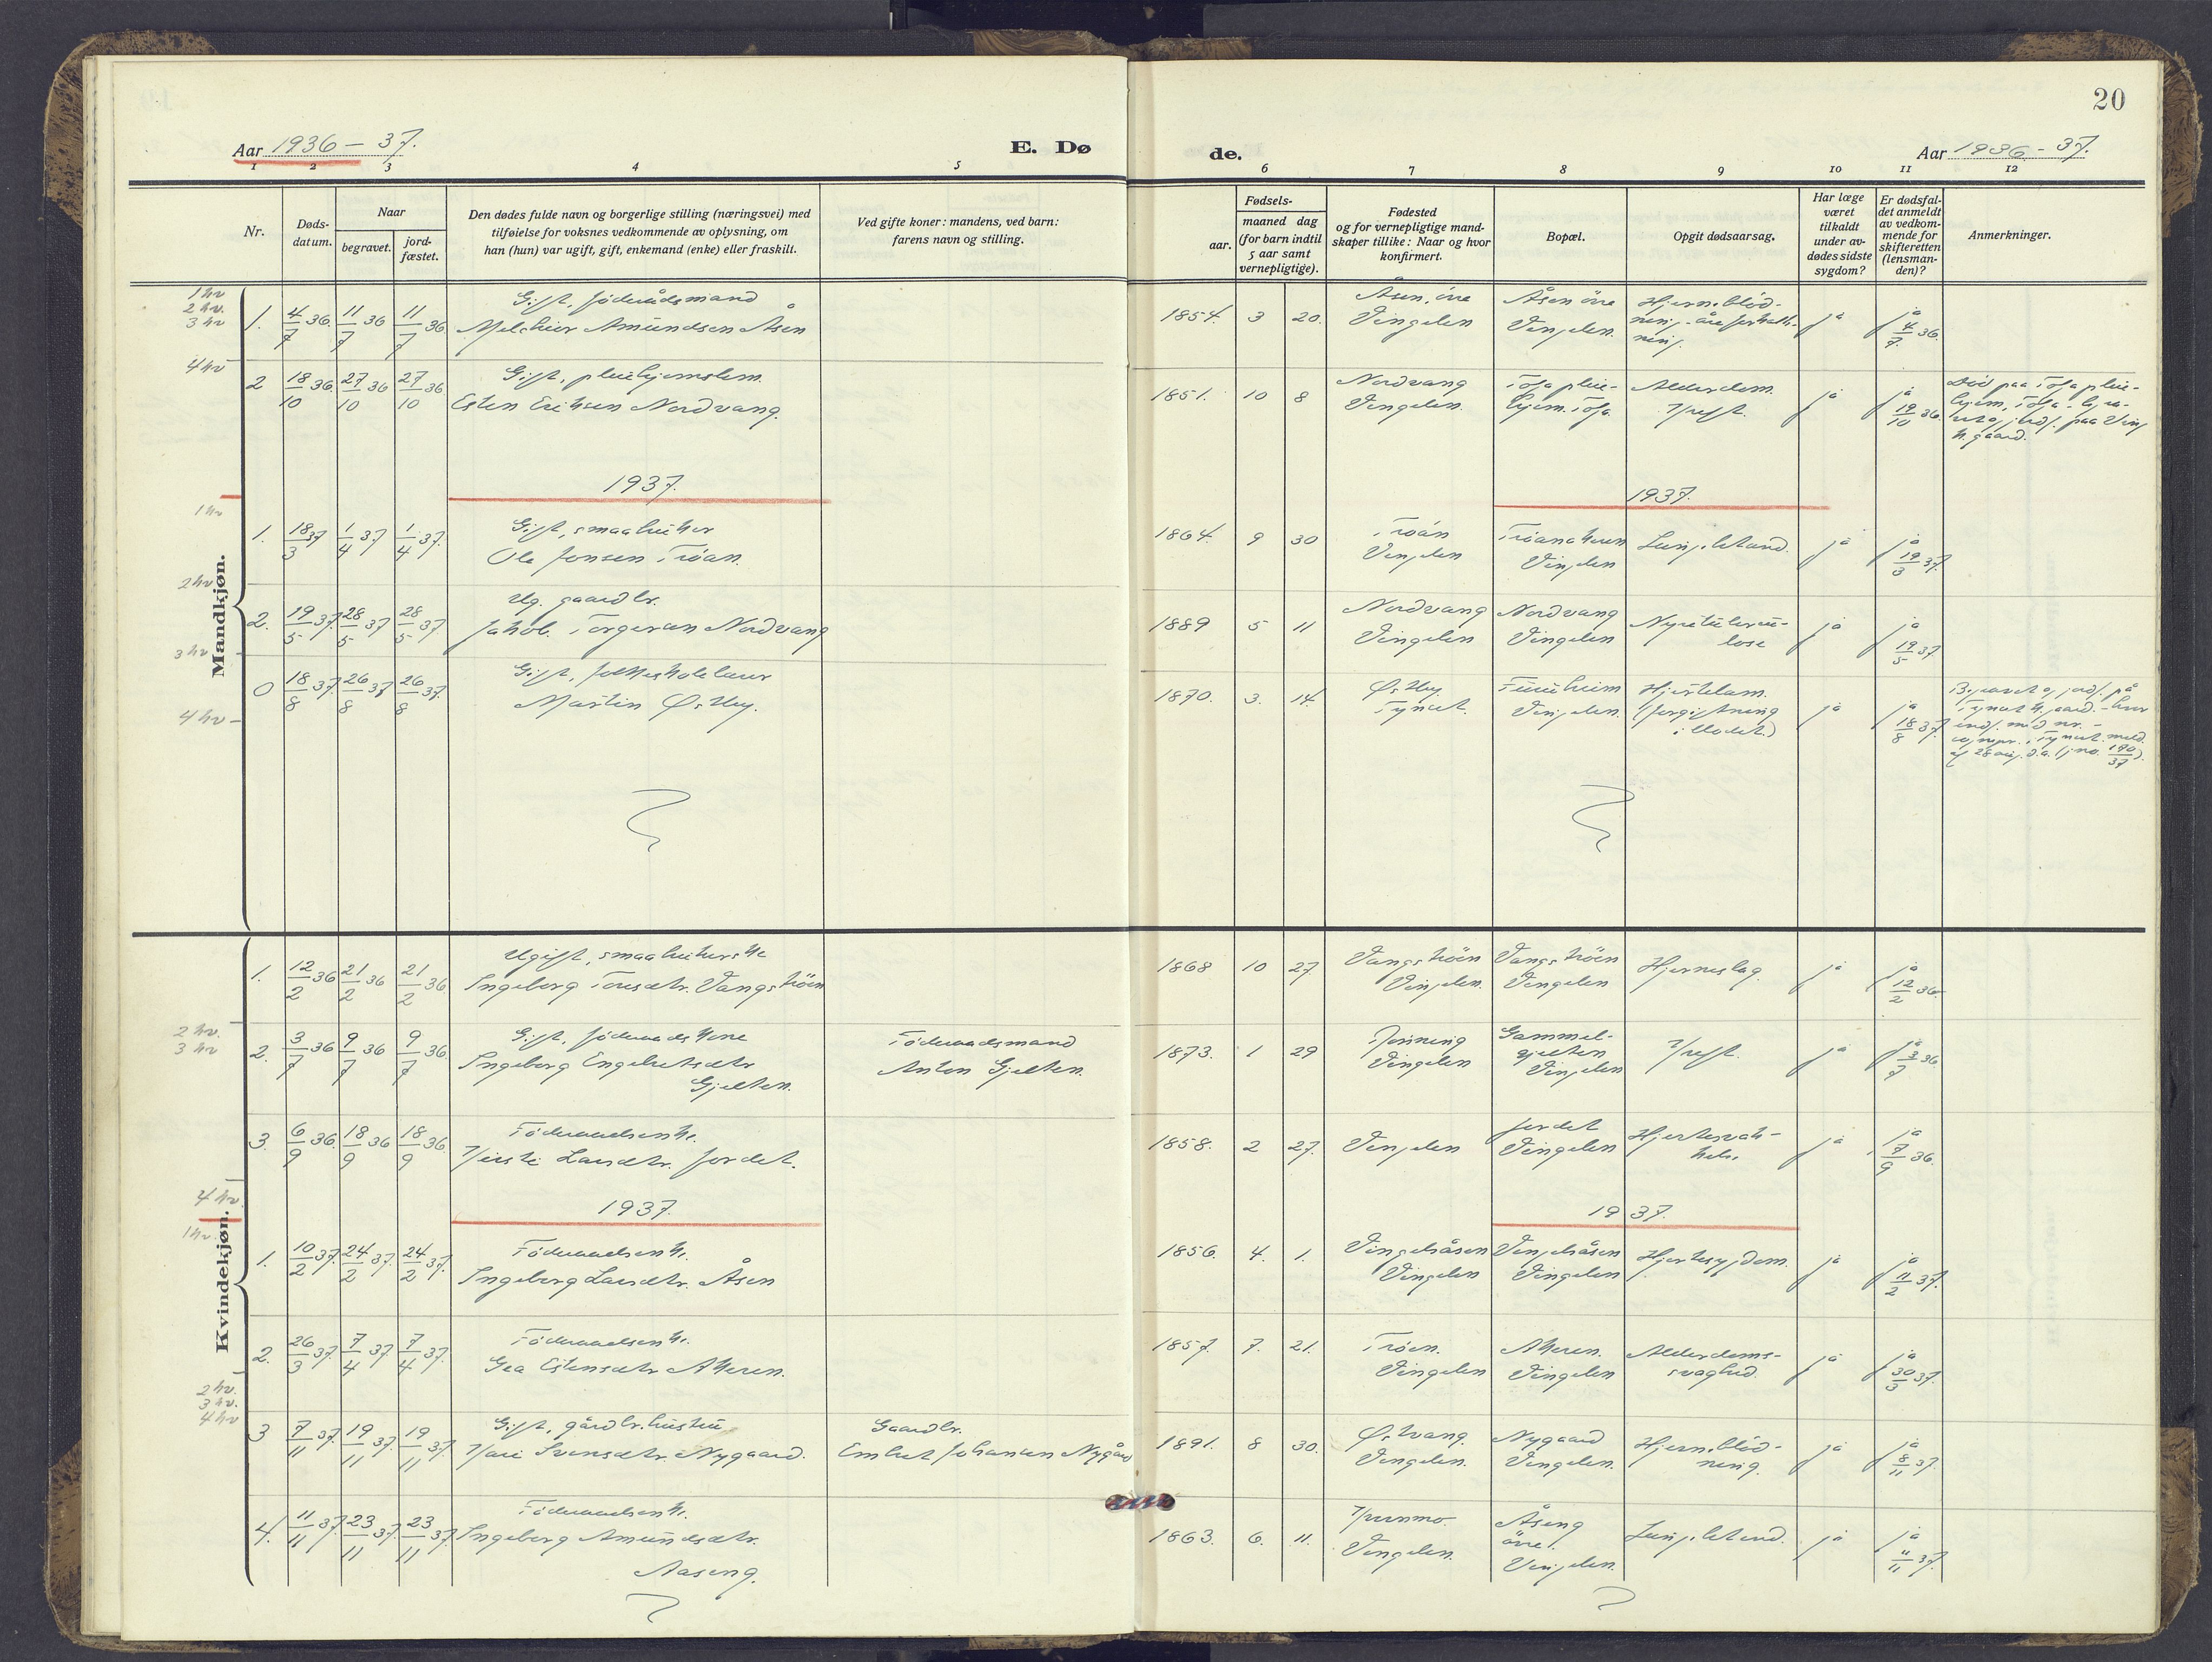 20
Aar 1936 – 37.
E. Dø
de.
Aar 1936 – 37.
1 2 3 4 5 6 7 8 9 10 11 12
Nr.
Døds-
datum.
Naar
begravet.
jord-
fæstet.
Den dødes fulde navn og borgerlige stilling (næringsvei) med
tilføielse for voksnes vedkommende av oplysning, om
han (hun) var ugift, gift, enkemand (enke) eller fraskilt.
Ved gifte koner: mandens, ved barn:
farens navn og stilling.
Fødsels-
aar.
maaned dag
(for barn indtil
5 aar samt
vernepligtige).
Fødested
og for vernepligtige mand-
skaper tillike: Naar og hvor
konfirmert.
Bopæl.
Opgit dødsaarsag.
Har læge
været
tilkaldt
under av-
dødes sidste
sygdom?
Er dødsfal-
det anmeldt
av vedkom-
mende for
skifteretten
(lensman-
den)?
Anmerkninger.
Mandkjøn.
1 kv
2 kv.
3 kv
1. 4/7 36. 11/7 36 11/7 36
Gift, föderådsmand
Melchior Amundsen Åsen
1854. 3 20.
Åsen, övre
Vingelen
Åsen övre
Vingelen.
Hjerneblöd-
ning - åreforkalk-
ning.
ja
ja 4/7 36.
4 kv
2 18/10 36. 27/10 36 27/10 36
Gift, pleiehjemslem.
Esten Eriksen Nordvang.
1851. 10 8
Nordvang
Vingelen.
Tolga pleie-
hjem. Tolga.
Alderdom.
Kreft.
ja
ja 19/10 36.
Död paa Tolga pleie-
hjem, Tolga -
og jordf. paa Ving
k. gaard.
1937.
1937.
1 kv
1. 18/3 37 1/4 37 1/4 37.
Gift, smaabruker
Ola Jonsen Tröan.
1864. 9 30
Tröan
Vingelen
Tröanakeren
Vingelen
Lungebetænd.
ja
ja 19/3 37.
2 kv
2. 19/5 37. 28/5 37 28/5 37
Ug. gaardbr.
Jakob Torgersen Nordvang
1889 5 11
Nordvang
Vingelen
Nordvang
Vingelen
Nyretuberku-
lose
ja
ja 19/5 37
3 kv
0 18/8 37. 26/8 37 26/8 37.
Gift, folkeskolelærer
Martin Østby.
1870. 3. 14.
Østby.
Tynset.
Furuheim
Vingelen.
Hjertelam.
(forgiftning
i blodet.)
ja
ja 18/8 37
Begravet og jordf. på
Tynset k. gaard. - hvor
indf. med nr. -
i Tynset. meld.
af 28 aug. d.a. (jno. 190/37).
4 kv
Kvindekjøn.
1. 12/2 36 21/2 36 21/2 36.
Ugift, smaabrukerske
Ingeborg Toresdtr. Vangströen
1868 10 27
Vangströen
Vingelen.
Vangströen
Vingelen
Hjerneslag.
ja
ja 12/2 36.
2 kv.
3 kv
2. 3/7 36 9/7 36 9/7 36.
Gift, föderaadskone
Ingeborg Engebretsdtr
Gjelten.
Föderaadsmand
Anton Gjelten.
1873. 1 29
Vingelen
Gammel-
gjelten
Vingelen
Kreft.
ja
ja 3/7 36
3 6/9 36. 18/9 36 18/9 36.
Föderaadsenke.
Kirsti Larsdtr. Jordet.
1858. 2 27.
Vingelen
Jordet
Vingelen
Hjertesvak-
kelse
ja
ja 7/9 36.
4 kv
1937.
1937.
1 kv.
1. 10/2 37. 24/2 37. 24/2 37.
Föderaadsenke.
Ingeborg Larsdtr. Åsen
1856. 4. 1.
Vingelsåsen
Vingelen
Vingelsåsen
Vingelen
Hjertesygdom.
ja
ja 11/2 37.
2. 26/3 37. 7/4 37. 7/4 37.
Föderaadsenke.
Gea Estensdtr Akeren.
1857. 7. 21.
Tröen.
Vingelen
Akeren.
Vingelen
Alderdoms-
svaghed.
ja
ja 30/3 37.
2 kv.
3 kv.
4 kv
3 7/11 37. 19/11 37. 19/11 37.
Gift, gårdbr. hustru
Kari Svensdtr. Nygaard.
Gaardbr.
Embret Johansen Nygård
1891. 8 30.
Østvang.
Vingelen.
Nygaard
Vingelen.
Hjerneblöd-
ning.
ja
ja 8/11 37.
4. 11/11 37. 23/11 37. 23/11 37.
Föderaadsenke.
Ingeborg Amundsdtr.
Aaseng.
1863. 6. 11.
Vingelen.
Åseng
övre.
Vingelen.
Lungebetænd.
ja
ja 11/11 37.